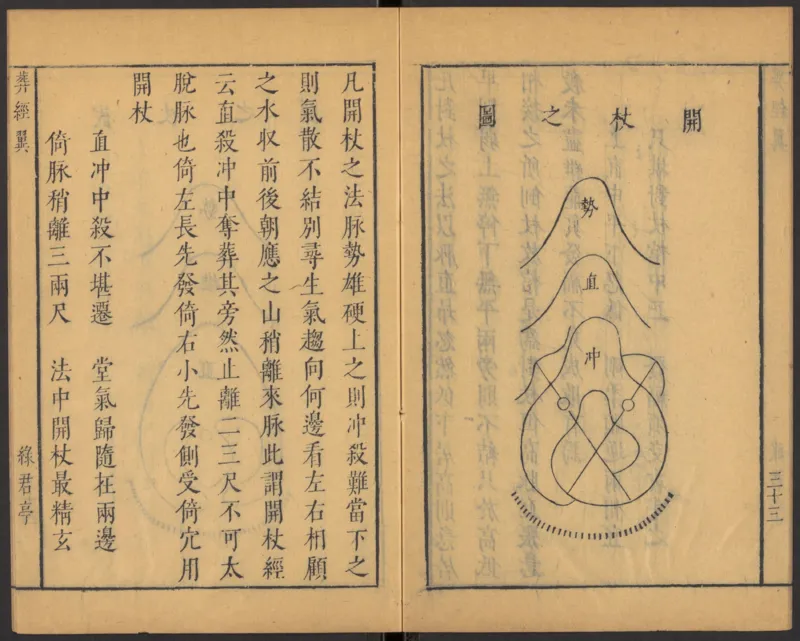 開杖之圖
勢
直
冲
三十三
凡開杖之法脉勢雄硬上之則冲殺難當下之
則氣散不結別尋生氣趨向何邊看左右相顧
之水収前後朝應之山稍離來脉此謂開杖經
云直殺冲中奪葬其旁然止離二三尺不可太
脫脉也倚左長先發倚右小先發側受倚穴用
開杖
直冲中殺不堪遷　堂氣歸隨在兩邊
倚脉稍離三兩尺　法中開杖最精玄
葬經翼
綠君亭